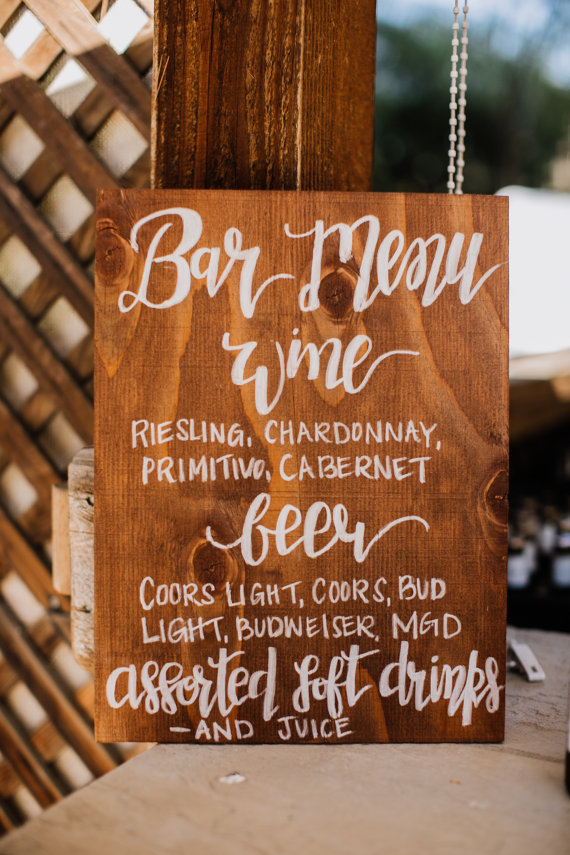 Bar Menu
wine
RIESLING, CHARDONNAY,
PRIMITIVO, CABERNET
beer
COORS LIGHT, COORS, BUD
LIGHT, BUDWEISER, MGD
assorted soft drinks
—AND JUICE